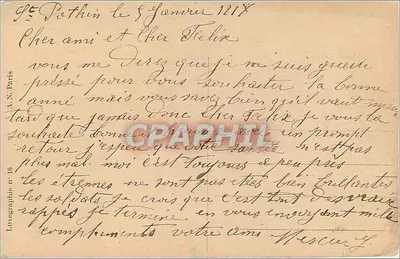 St Pothin le 5 Janvier 1917
Cher ami et Cher Felix
vous me direz que je ne suis guere
pressé pour vous souhaiter la bonne
anné mais vous savez bien qu'il vaut mieu
tard que jamais donc Cher Felix je vous la
souhaite bonne avec un prompt
retour j'espere que votre santée n'est pas
plus mal moi c'est toujours a peu près
les étrennes ne sont pas etés bien brillantes
les soldats je crois que c'est tout des
rappés je termine en vous envoyant mille
compliments votre ami Mercier J.
CPAPHIL
A. N. Paris
Lucographie n° 16